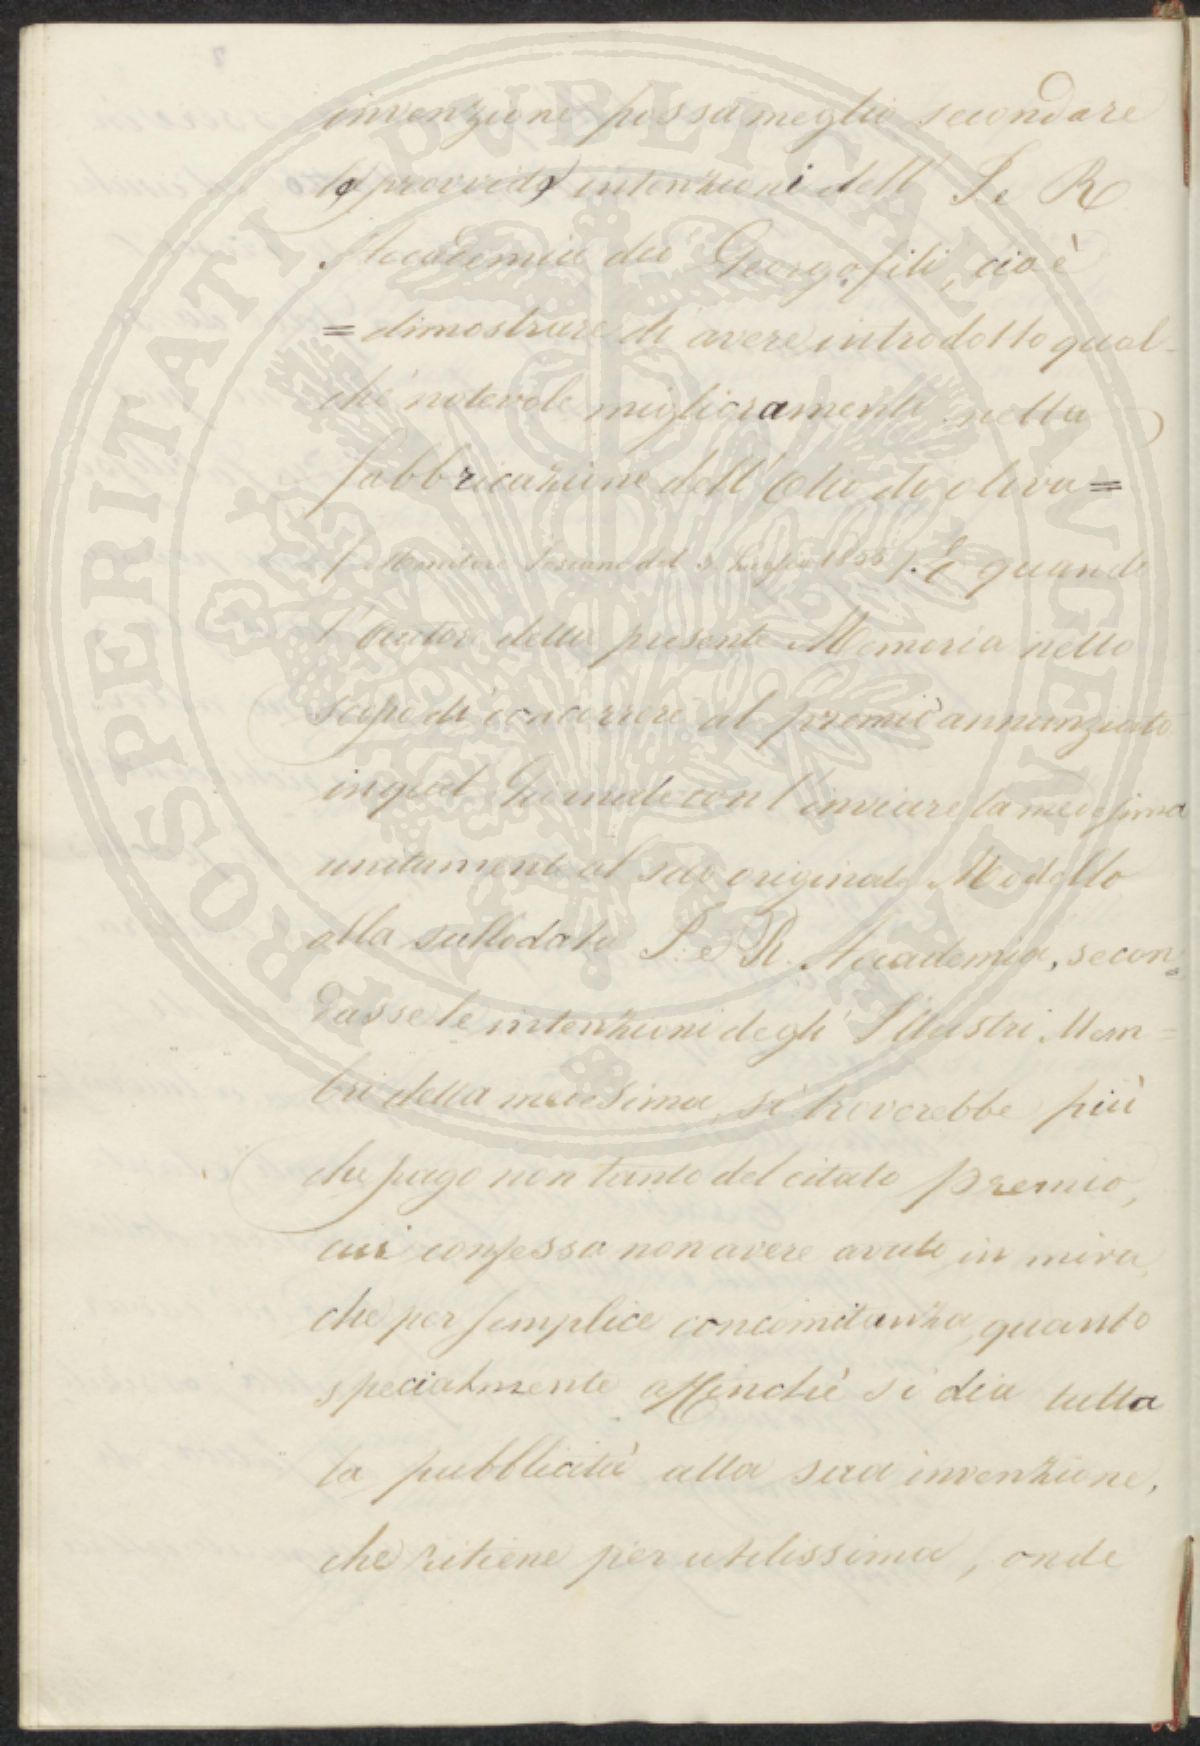 invenzione possa meglio secondare
le provvide intenzioni dell' I. e R.
Accademia dei Georgofili, cioè
= dimostrare di avere introdotto qual-
che notevole miglioramento nella
fabbricazione dell'Olio di oliva =
( Monitore Toscano del 3. Luglio 1855 ). E quando
l'Autore della presente Memoria nello
scopo di concorrere al premio annunziato
in quel Giornale con l'inviare la medesima
unitamente al suo originale Modello
alla sullodata I. e R. Accademia, secon=
dasse le intenzioni degli Illustri Mem=
bri della medesima, si troverebbe più
che pago non tanto del citato premio,
cui confessa non avere avuto in mira,
che per semplice concomitanza, quanto
specialmente affinchè si dia tutta
la pubblicità alla sua invenzione,
che ritiene per utilissima, onde
PROSPERITATI PUBLICAE AUGENDAE